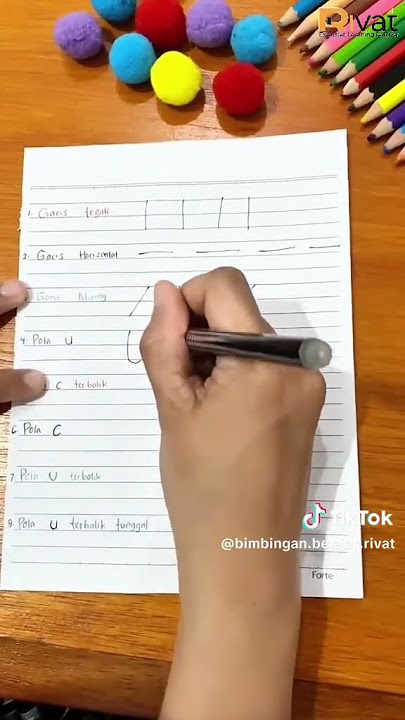 Rivat
1. Garis tegak
2. Garis Horizontal
Garis Miring
4. Pola U
C terbalik
6. Pola C
7. Pola U terbalik
8. Pola U terbalik tunggal
TikTok
@bimbingan.belajar.rivat
Forte